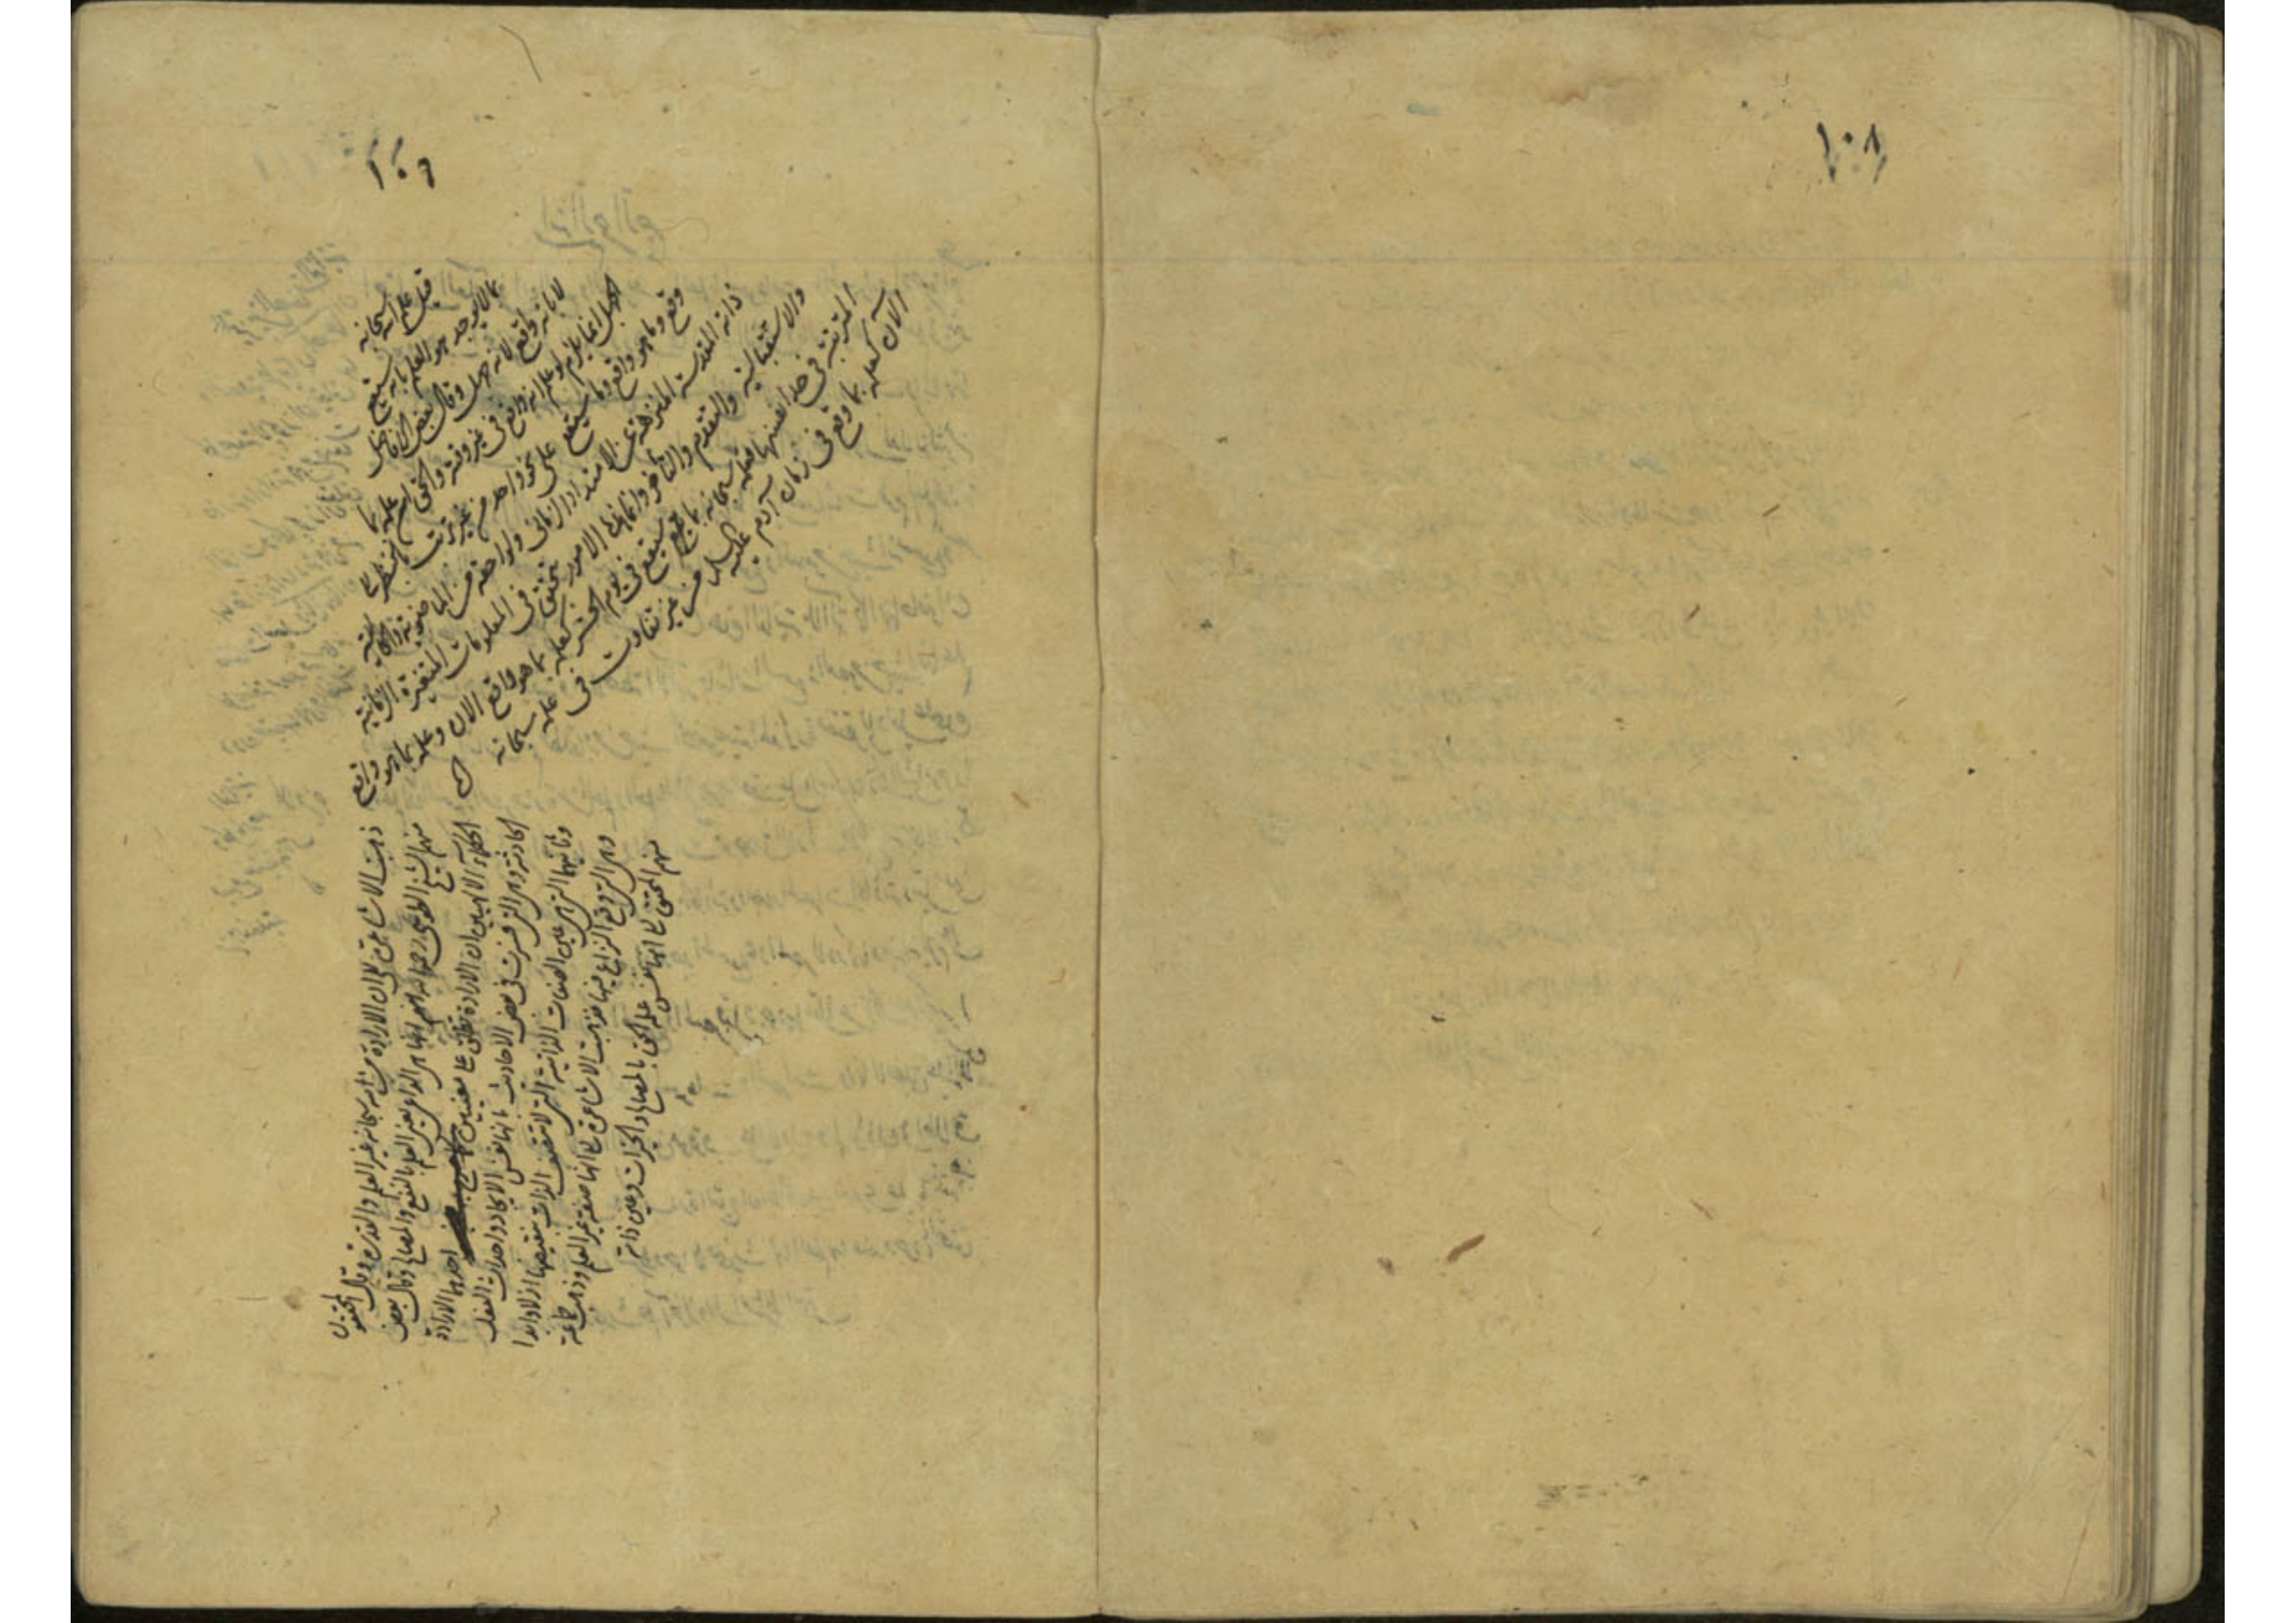 ١٠٨
١٠٩
قيل علم الله سبحانه
بما لا يوجد هو العلم بانه سيقع
لا بانه واقع لانه جهل وقال بعض الافاضل
الجهل انما يلزم لو علم انه واقع في غير وقته والحق ان علمه بما
وقع وبما هو واقع وبما سيقع على نحو واحد من غير ترتب بالنظر الى
ذاته المقدسة المنزهة عن الامتداد الزماني ولواحقه من الماضوية والحالية
والاستقبالية والتقدم والتأخر وانما هذا الامور تتحقق في المعلومات المتغيرة الزمانية
المترتبة في حد انفسها فعلمه سبحانه بما سيقع في يوم الحشر كعلمه بما هو واقع الان وعلمه بما هو واقع
الآن كعلمه بما وقع في زمان آدم عليه السلام من غير تفاوت في علمه سبحانه
ذهبت الاشاعرة الى ان الارادة من الله سبحانه غير العلم والقدرة وقال المحققون
منهم الشيخ الطوسي رحمه الله انها هي الداعي يعني العلم بالنفع والمصالح وقال بعض
الحكماء الالهيين ان الارادة تطلق على معنيين احدهما الارادة
الحادثة وهي التي فسرت في بعض الاحاديث بانها نفس الايجاد واحداث الفعل
وثانيهما التي هي عين الصفات الذاتية التي لا تتصف الذات بنقيضها ازلا وابدا
وهي التي وقع النزاع فيها فذهبت الاشاعرة الى انها صفة غير العلم وذهب جماعة
منهم المحقق الى انها نفس علمه الحق بالمصالح والخيرات وعين ذاته